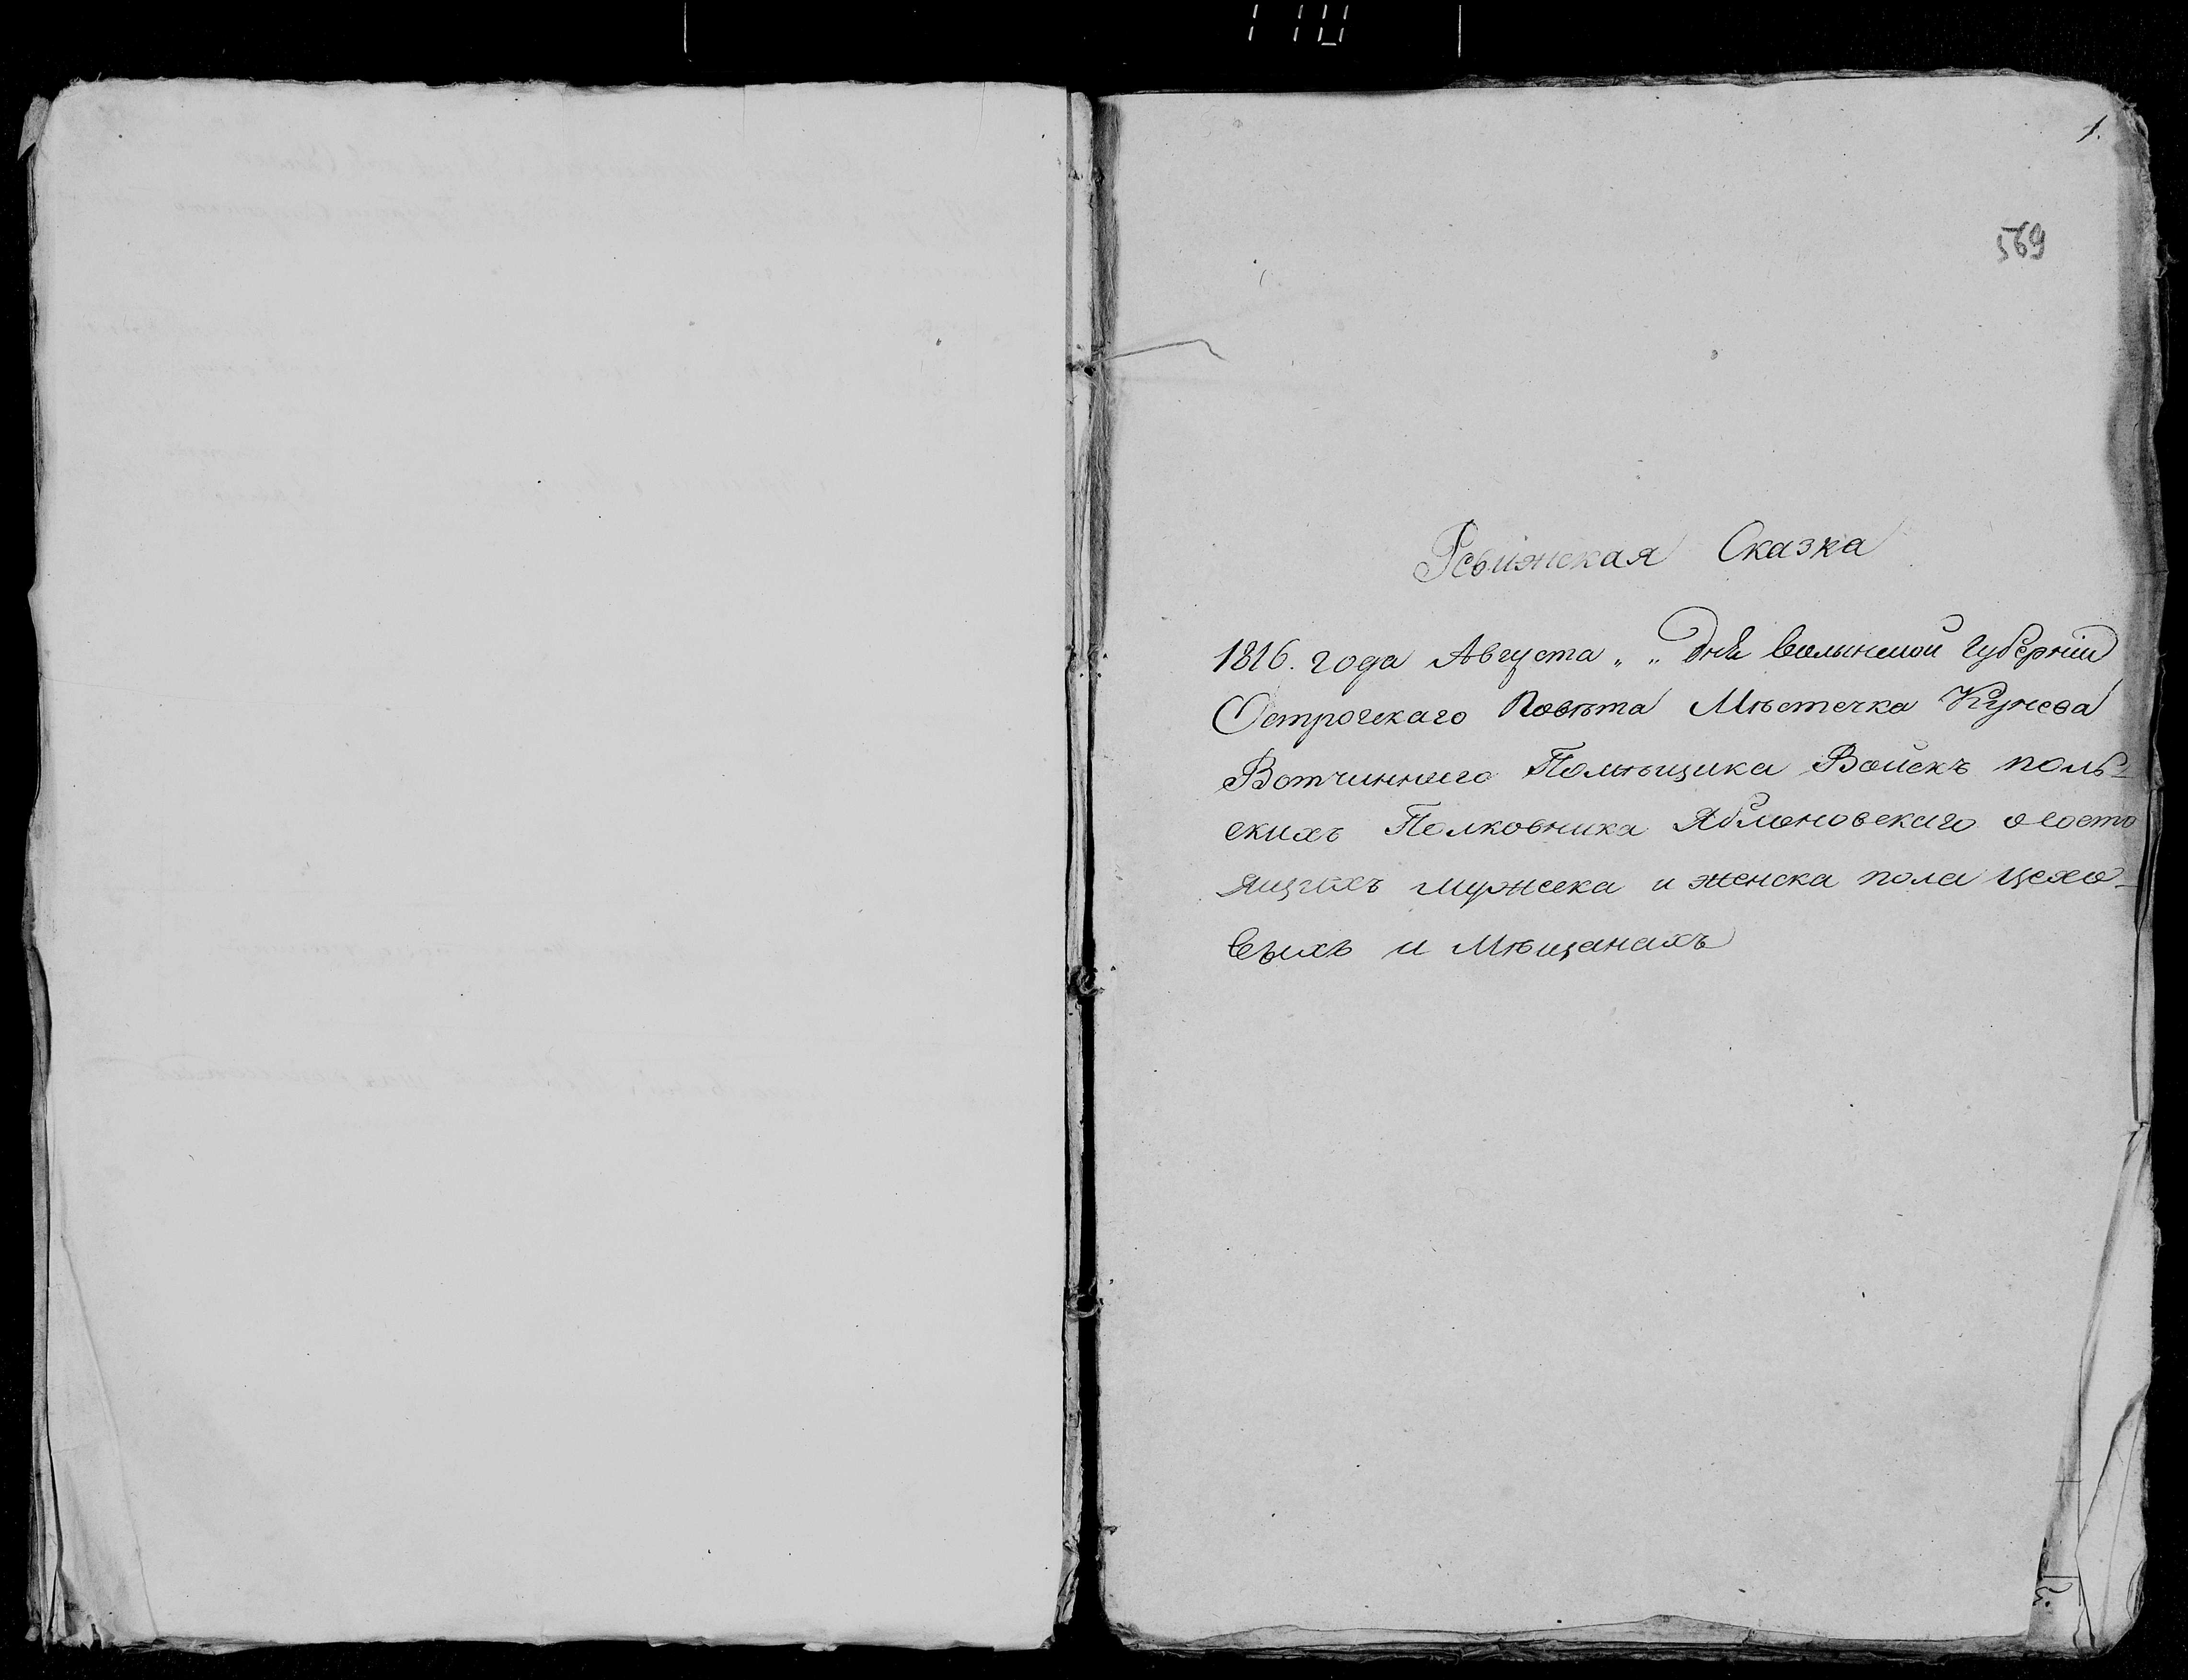 1.
569
Ревижская Сказка
1816. года Августа „ „ дня Волынской Губерніи
Острогскаго Повѣта Мѣстечка Кунева
Вотчиннаго Помѣщика Войскъ поль-
скихъ Полковника Яблоновскаго о состо
ящихъ мужеска и женска пола цехо-
выхъ и Мѣщанахъ